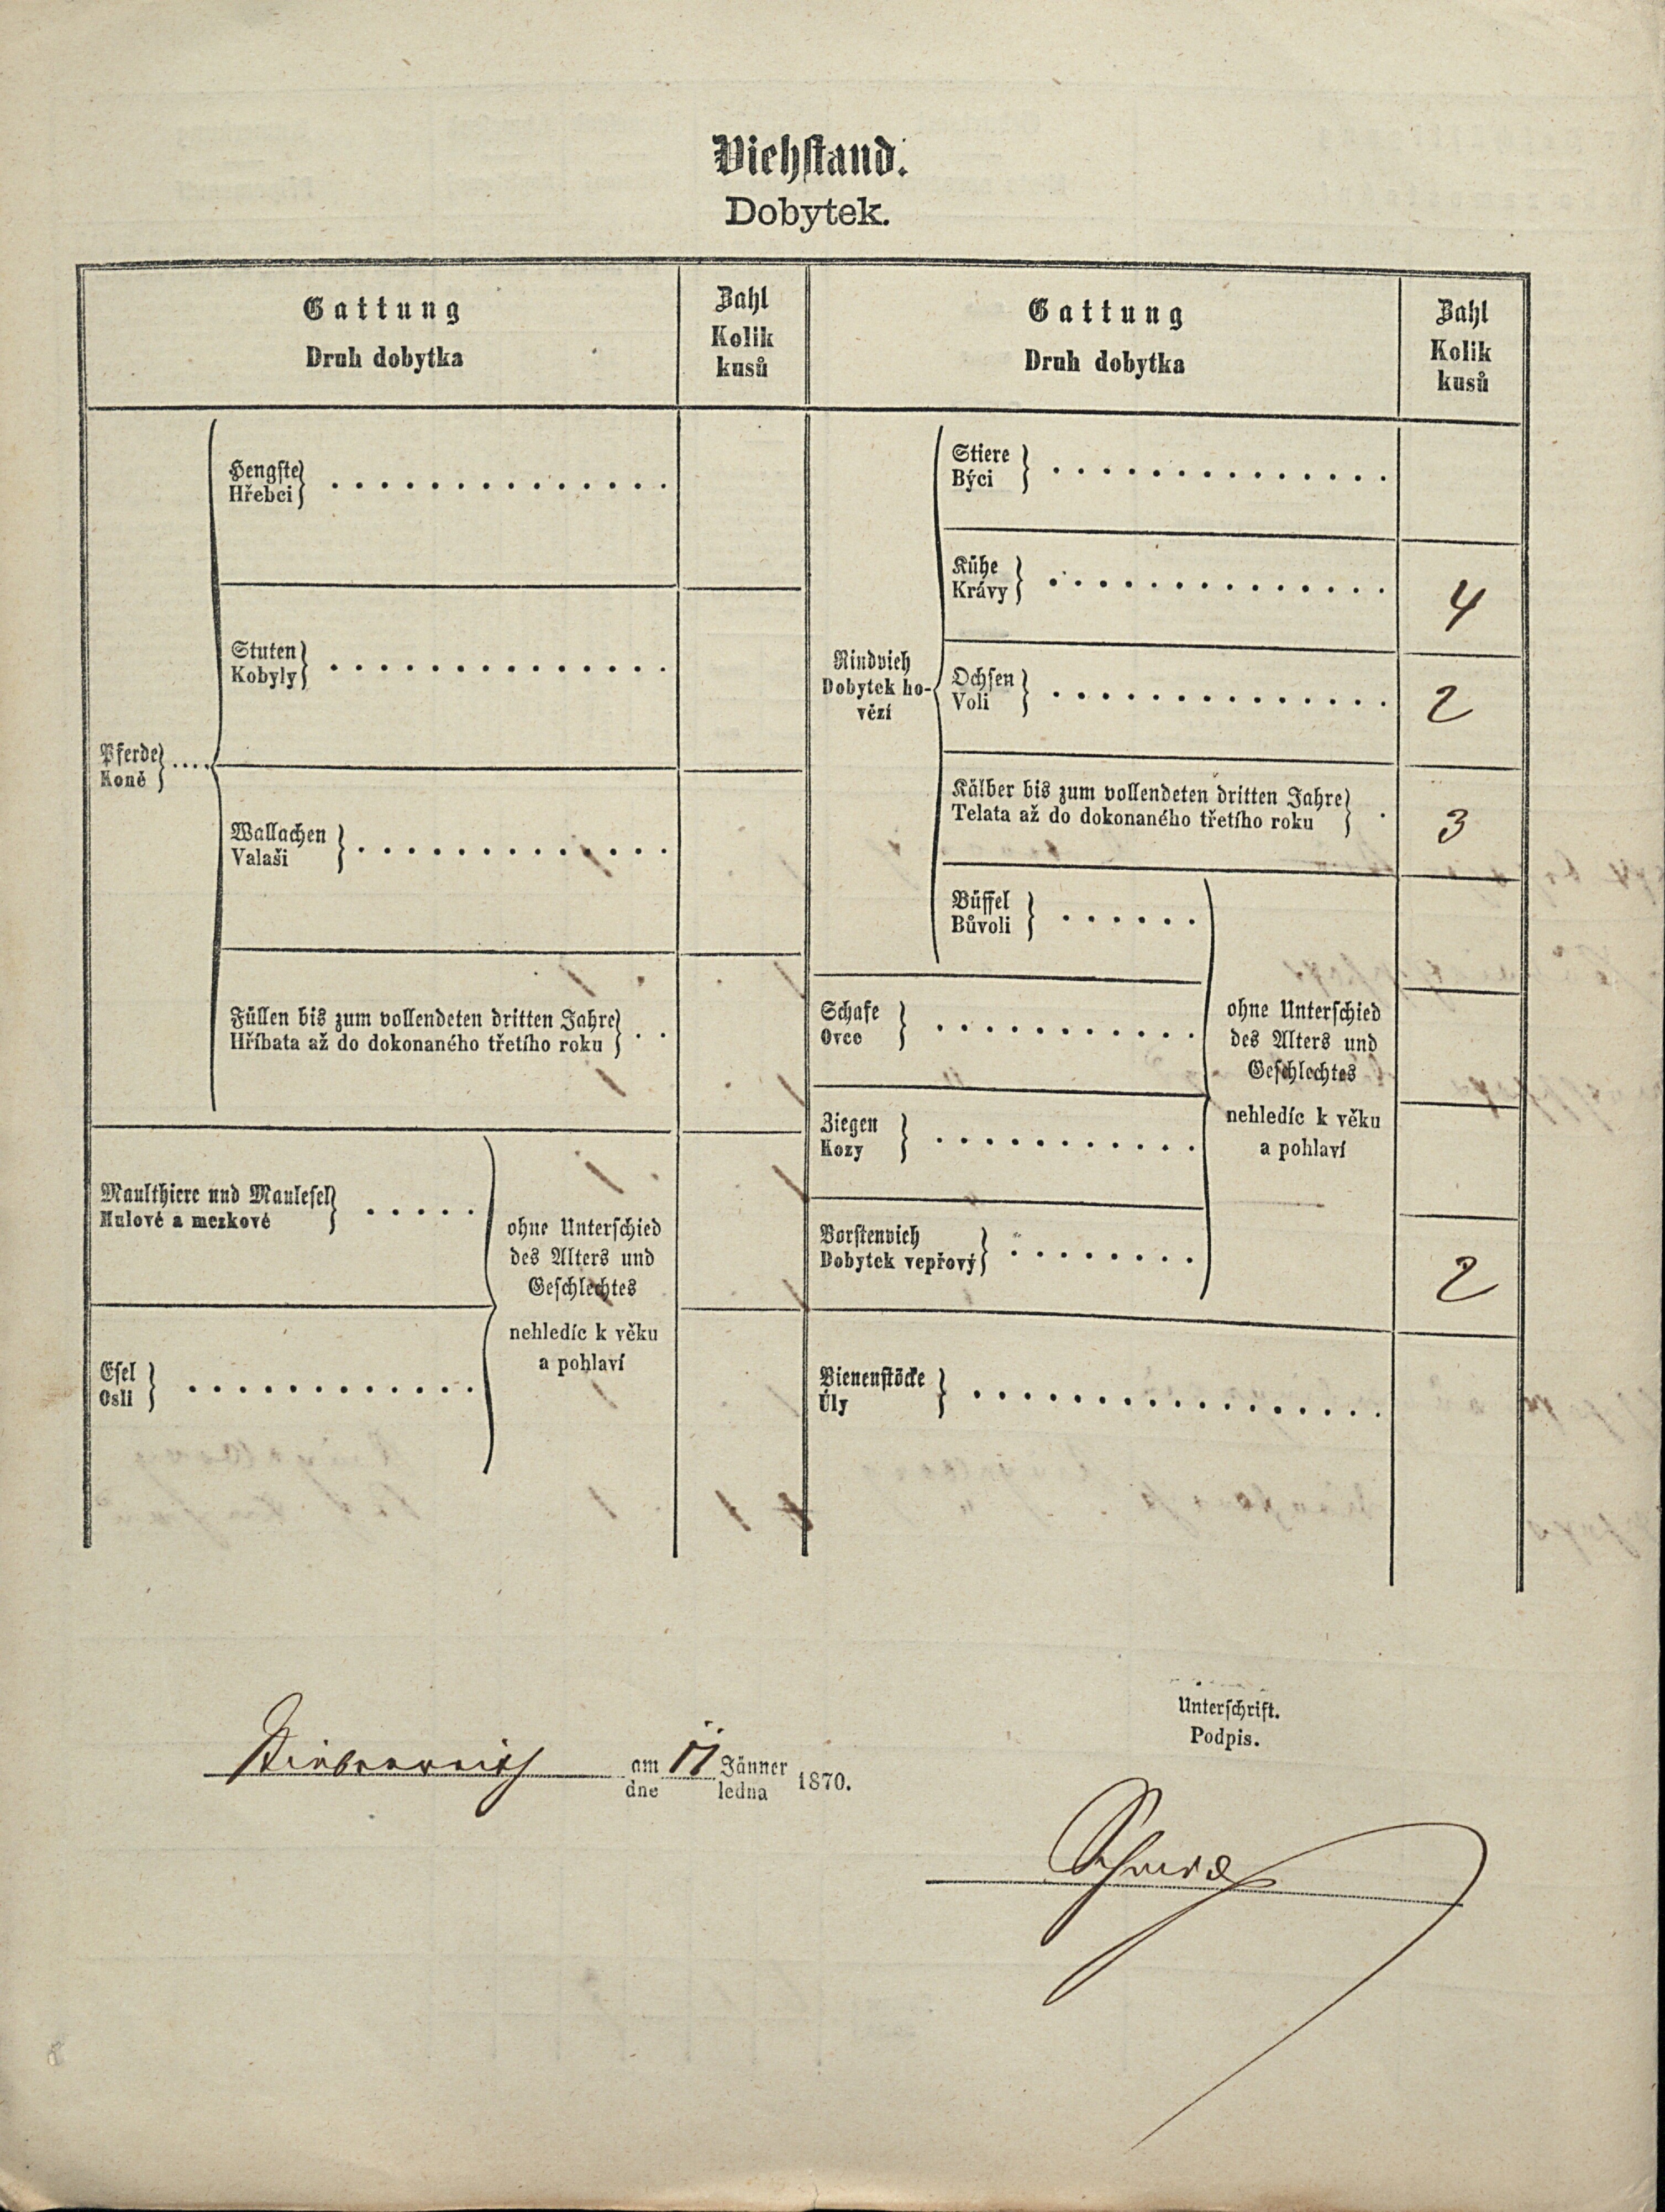 Viehstand.
Dobytek.
Gattung
Druh dobytka
Zahl
Kolik
kusů
Gattung
Druh dobytka
Zahl
Kolik
kusů
Pferde
Koně
Hengste
Hřebci
Stuten
Kobyly
Wallachen
Valaši
Füllen bis zum vollendeten dritten Jahre
Hříbata až do dokonaného třetího roku
Maulthiere und Maulesel
Mulové a mezkové
Esel
Osli
ohne Unterschied
des Alters und
Geschlechtes
nehledíc k věku
a pohlaví
Rindvieh
Dobytek ho-
vězí
Stiere
Býci
Kühe
Krávy
4
Ochsen
Voli
2
Kälber bis zum vollendeten dritten Jahre
Telata až do dokonaného třetího roku
3
Büffel
Bůvoli
Schafe
Ovce
Ziegen
Kozy
Borstenvieh
Dobytek vepřový
2
ohne Unterschied
des Alters und
Geschlechtes
nehledíc k věku
a pohlaví
Bienenstöcke
Úly
am Jänner
dne ledna 1870.
Unterschrift.
Podpis.